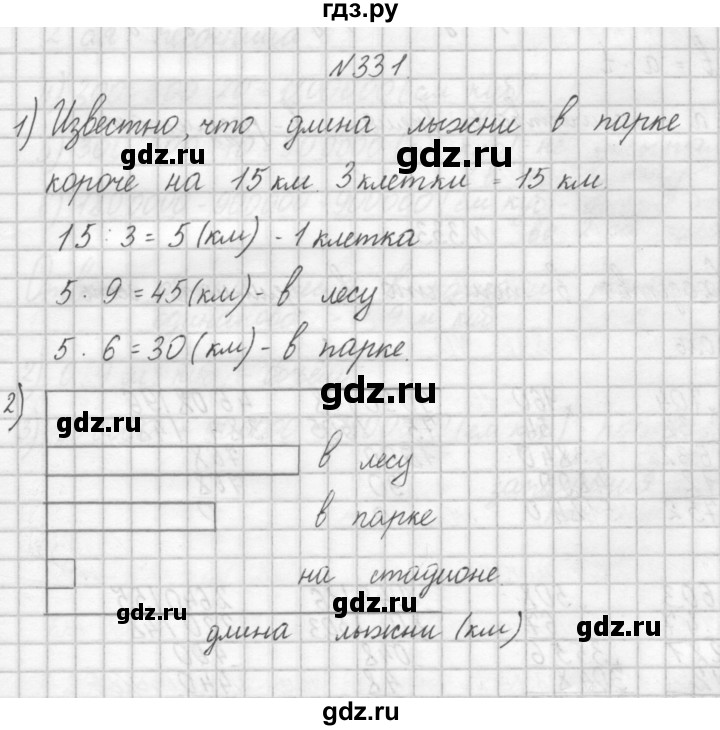 гдз.ру
№331.
1) Известно, что длина лыжни в парке
gdz.ru gdz.ru
короче на 15 км. 3 клетки = 15 км.
15 : 3 = 5 (км) - 1 клетка
5 · 9 = 45 (км) - в лесу
5 · 6 = 30 (км) - в парке.
gdz.ru
2)
gdz.ru
в лесу
в парке
на стадионе.
gdz.ru gdz.ru
длина лыжни (км)
gdz.ru
gdz.ru